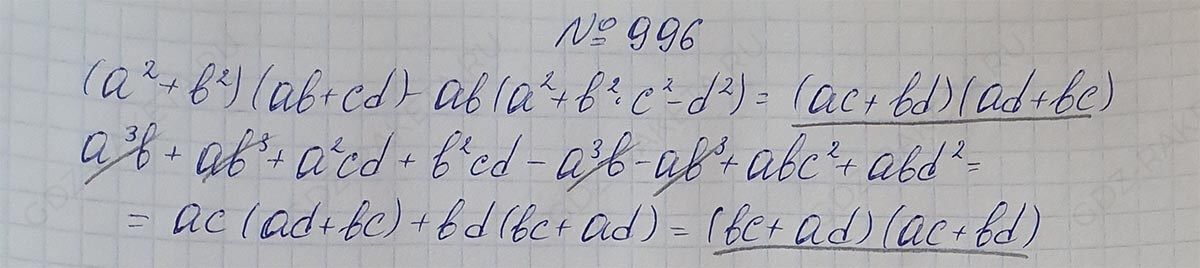 № 996
(a² + b²)(ab + cd) - ab(a² + b² · c² - d²) = (ac + bd)(ad + bc)
a³b + ab³ + a²cd + b²cd - a³b - ab³ + abc² + abd² =
= ac(ad + bc) + bd(bc + ad) = (bc + ad)(ac + bd)